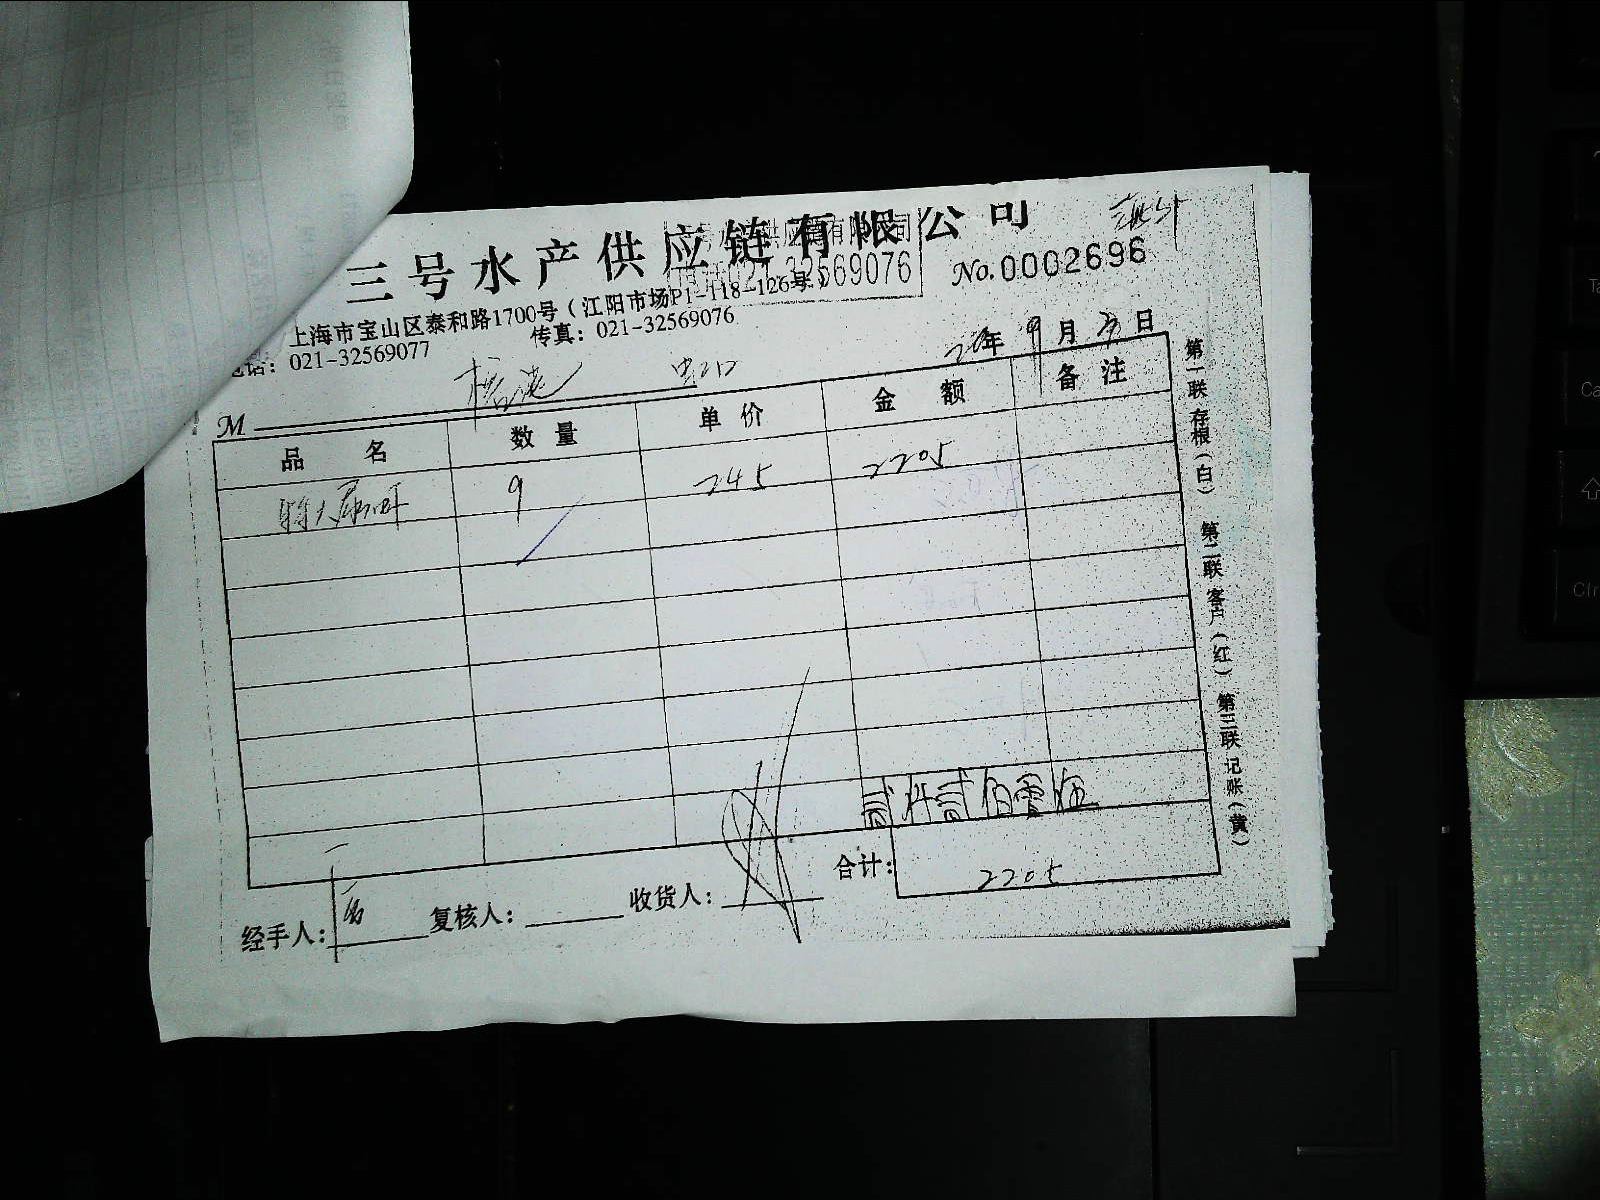 三号水产供应链有限公司
021-32569076
No.0002696
上海市宝山区泰和路1700号（江阳市场P1-118-126号）
电话：021-32569077 传真：021-32569076
20年9月 日
M
品名 数量 单价 金额 备注
特大 9 245 2205
贰仟贰佰零伍
合计： 2205
经手人： 复核人： 收货人：
第一联存根（白） 第二联客户（红） 第三联记账（黄）